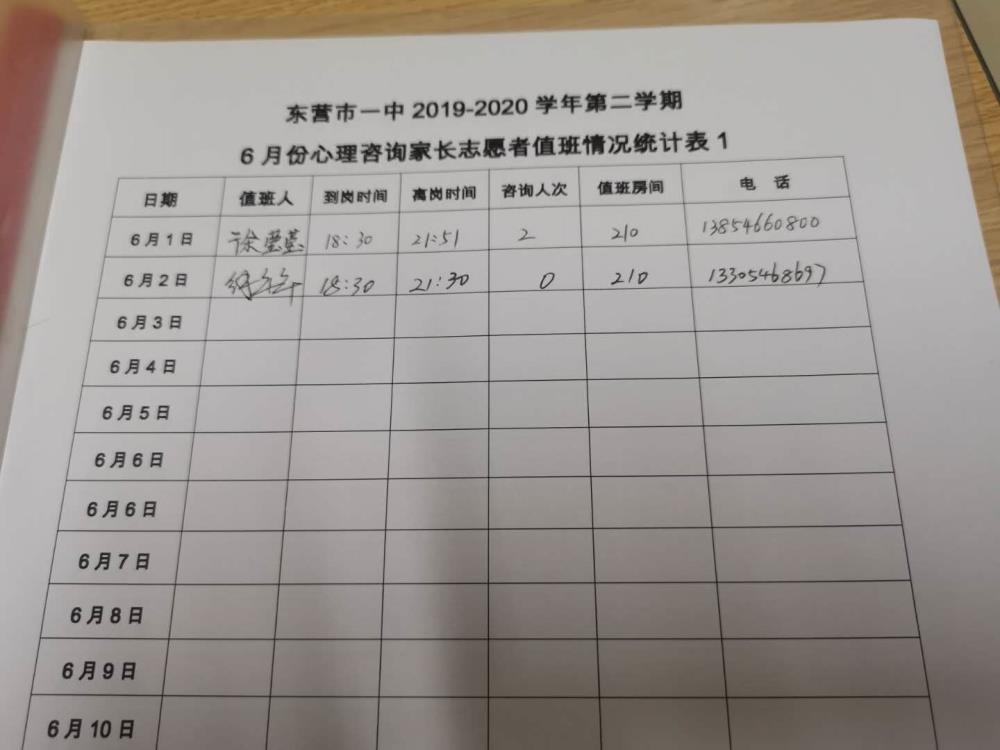 东营市一中 2019-2020 学年第二学期
6 月份心理咨询家长志愿者值班情况统计表 1
日期 值班人 到岗时间 离岗时间 咨询人次 值班房间 电 话
6 月 1 日 徐莹莹 18:30 21:51 2 210 13854660800
6 月 2 日 18:30 21:30 0 210 13305468697
6 月 3 日
6 月 4 日
6 月 5 日
6 月 6 日
6 月 6 日
6 月 7 日
6 月 8 日
6 月 9 日
6 月 10 日